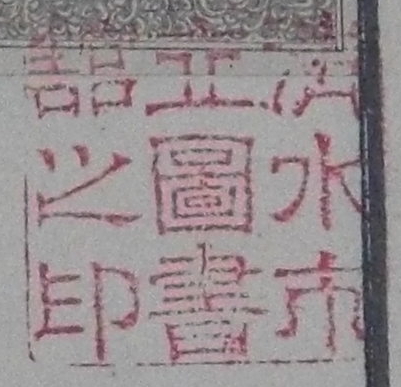 清水市
立圖書
館之印